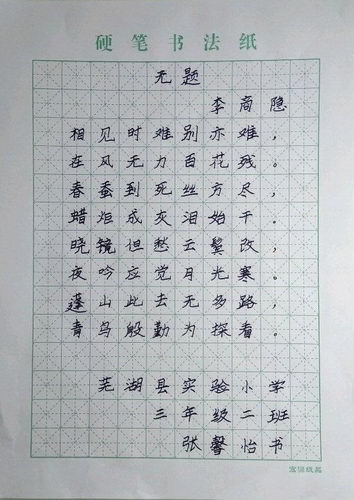 硬笔书法纸
无题
李商隐
相见时难别亦难，
在风无力百花残。
春蚕到死丝方尽，
蜡炬成灰泪始干。
晓镜但愁云鬓改，
夜吟应觉月光寒。
蓬山此去无多路，
青鸟殷勤为探看。
芜湖县实验小学
三年级二班
张馨怡书